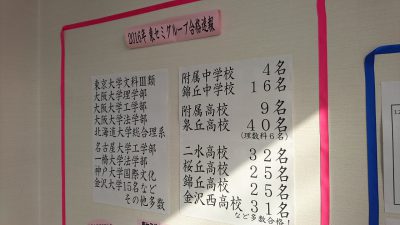 2016年 東セミグループ合格速報
東京大学文科Ⅲ類
大阪大学理学部
大阪大学工学部
大阪大学法学部
北海道大学総合理系
名古屋大学工学部
一橋大学法学部
神戸大学国際文化
金沢大学15名など
その他多数
附属中学校 4名
錦丘中学校 16名
附属高校 9名
泉丘高校 40名
(理数科6名)
二水高校 32名
桜丘高校 25名
錦丘高校 25名
金沢西高校 31名
など多数合格!